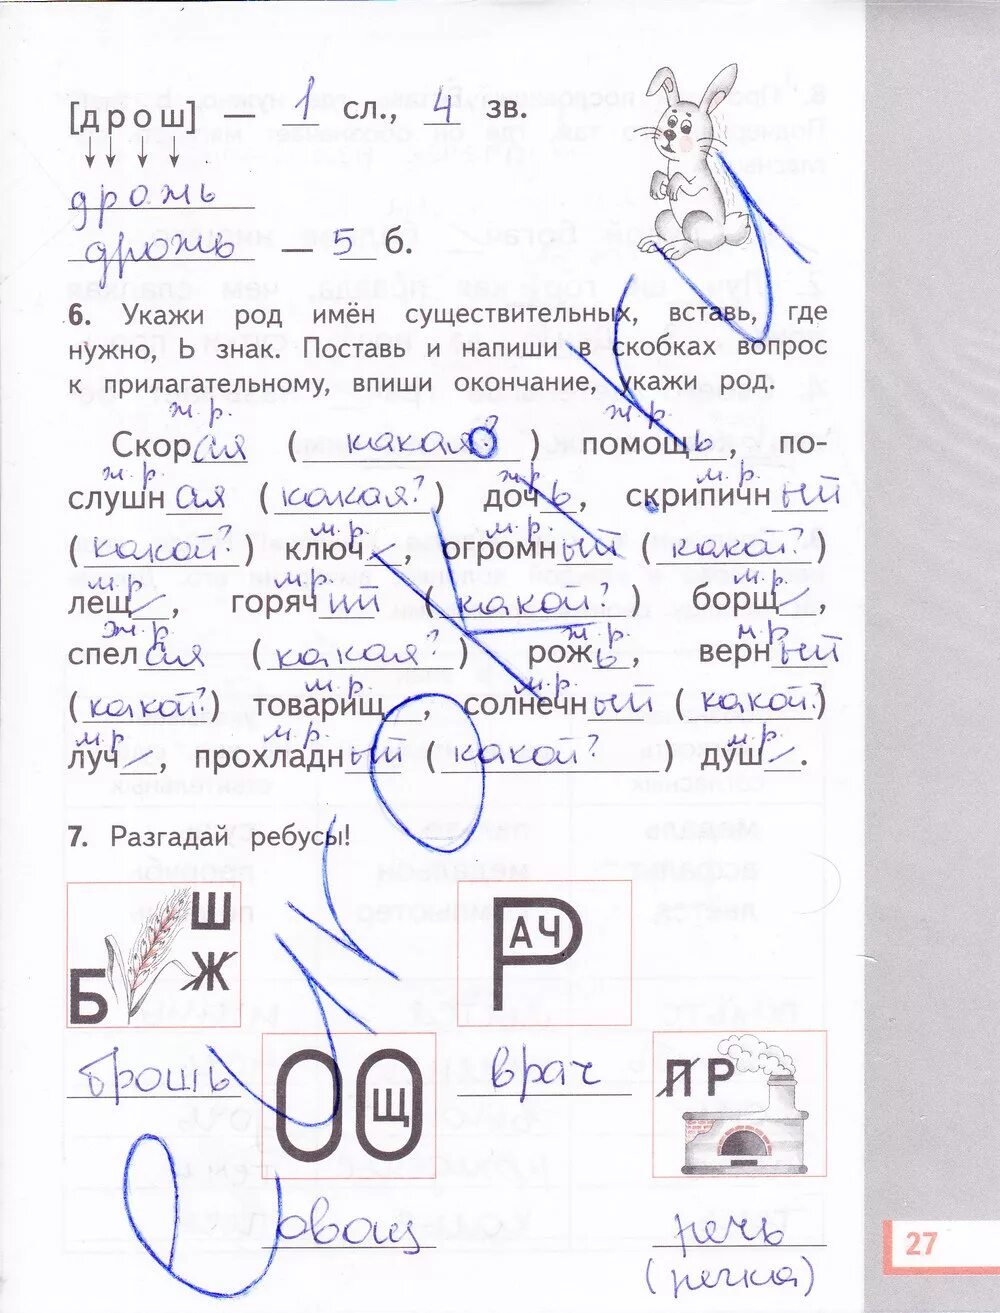 [дрош] — 1 сл., 4 зв.
дрожь
дрожь — 5 б.
6. Укажи род имён существительных, вставь, где
нужно, Ь знак. Поставь и напиши в скобках вопрос
к прилагательному, впиши окончание, укажи род.
ж.р. ж.р.
Скорая (какая?) помощь, по-
ж.р. ж.р. м.р.
слушная (какая?) дочь, скрипичный
м.р. м.р.
(какой?) ключ, огромный (какой?)
м.р. м.р. м.р.
лещ, горячий (какой?) борщ,
ж.р. ж.р. м.р.
спелая (какая?) рожь, верный
м.р. м.р.
(какой?) товарищ, солнечный (какой?)
м.р. м.р. м.р.
луч, прохладный (какой?) душ.
7. Разгадай ребусы!
Б Ш Ж
Р АЧ
брошь
врач
О О Щ
П Р
овощ
речь
(печка)
27